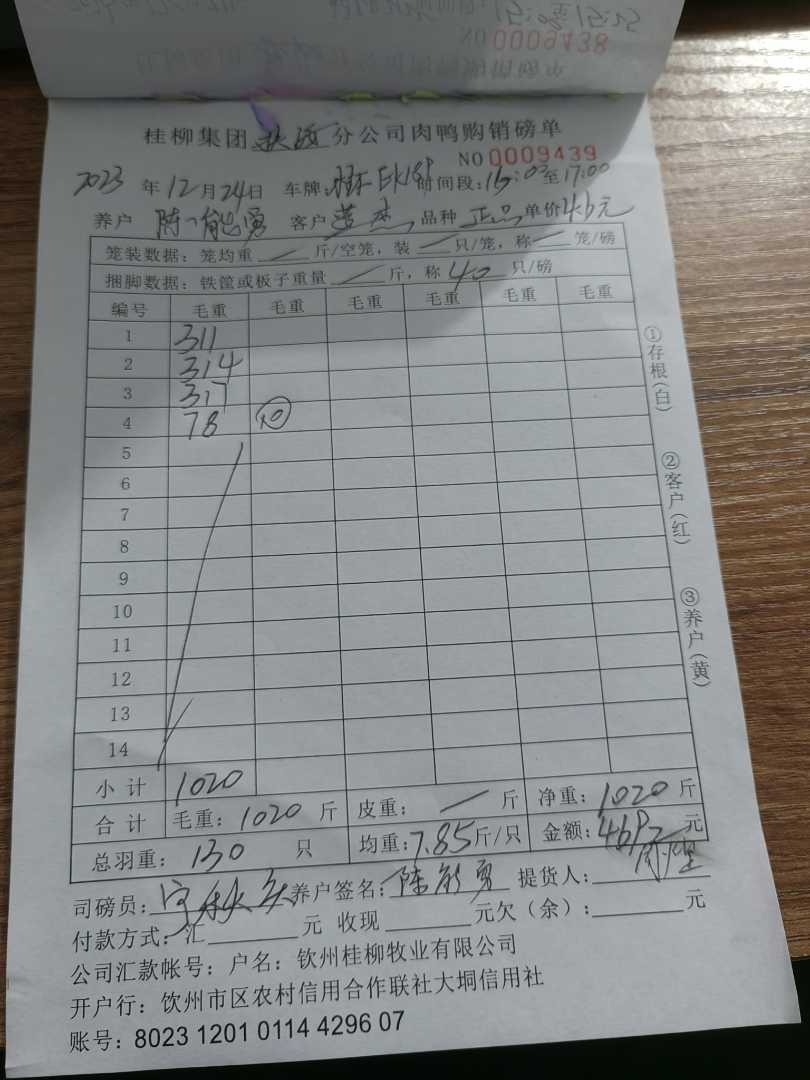 NO 0009438
桂柳集团 钦源 分公司肉鸭购销磅单
NO 0009439
2023 年 12 月 24 日 车牌: 时间段: 15:03 至 17:00
养户 陈能勇 客户 杰 品种 正品 单价 4.6元
笼装数据: 笼均重 — 斤/空笼, 装 — 只/笼, 称 — 笼/磅
捆脚数据: 铁筐或板子重量 — 斤, 称 40 只/磅
编号 毛重 毛重 毛重 毛重 毛重 毛重
1 311
2 314
3 317
4 78 10
5
6
7
8
9
10
11
12
13
14
小计 1020
合计 毛重: 1020 斤 皮重: — 斤 净重: 1020 斤
总羽重: 130 只 均重: 7.85 斤/只 金额: 4692 元
司磅员: 养户签名: 陈能勇 提货人:
付款方式: 汇 元 收现 元欠(余): 元
公司汇款帐号: 户名: 钦州桂柳牧业有限公司
开户行: 钦州市区农村信用合作联社大垌信用社
账号: 8023 1201 0114 4296 07
①存根(白)
②客户(红)
③养户(黄)